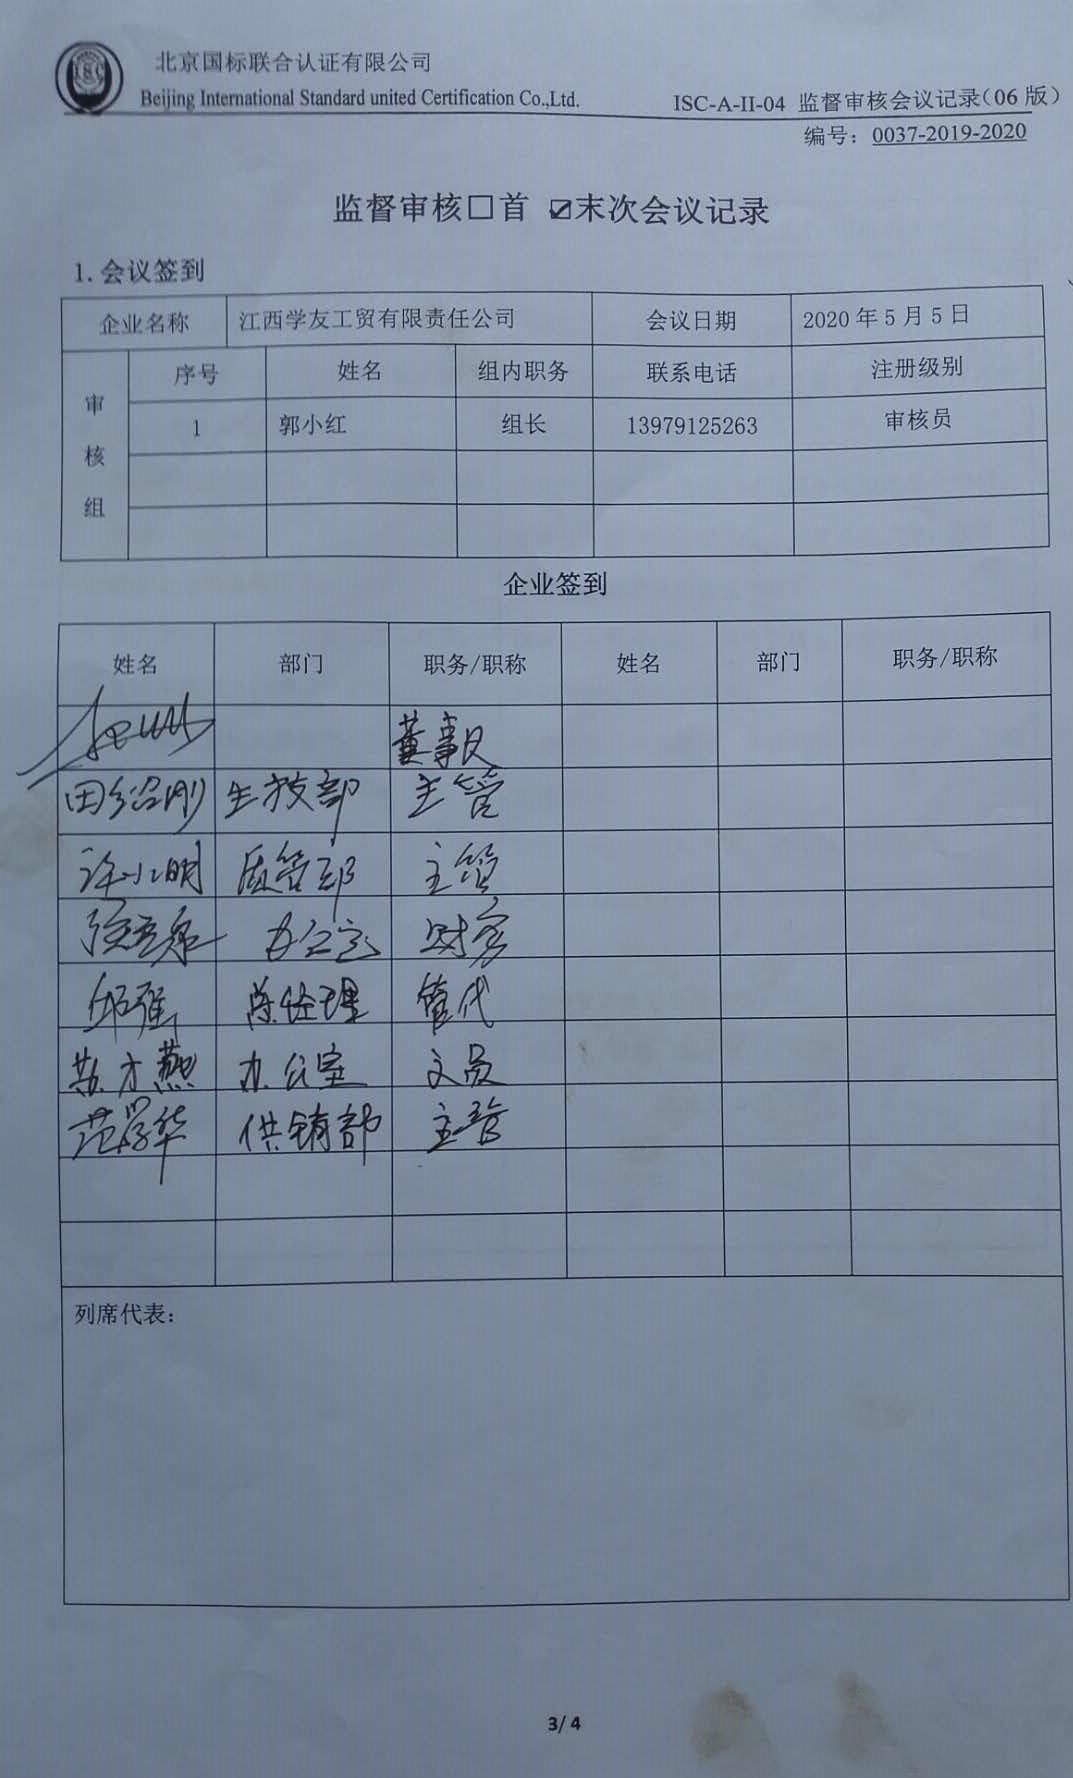 北京国标联合认证有限公司
Beijing International Standard united Certification Co.,Ltd.
ISC-A-II-04 监督审核会议记录(06 版)
编号：0037-2019-2020
监督审核□首 ☑末次会议记录
1.会议签到
企业名称 江西学友工贸有限责任公司 会议日期 2020 年 5 月 5 日
审核组 序号 姓名 组内职务 联系电话 注册级别
1 郭小红 组长 13979125263 审核员
企业签到
姓名 部门 职务/职称 姓名 部门 职务/职称
董事长
田绍刚 生技部 主管
许小明 质管部 主管
办公室 财务
邱强 总经理 管代
苏才燕 办公室 文员
范学华 供销部 主管
列席代表：
3/ 4